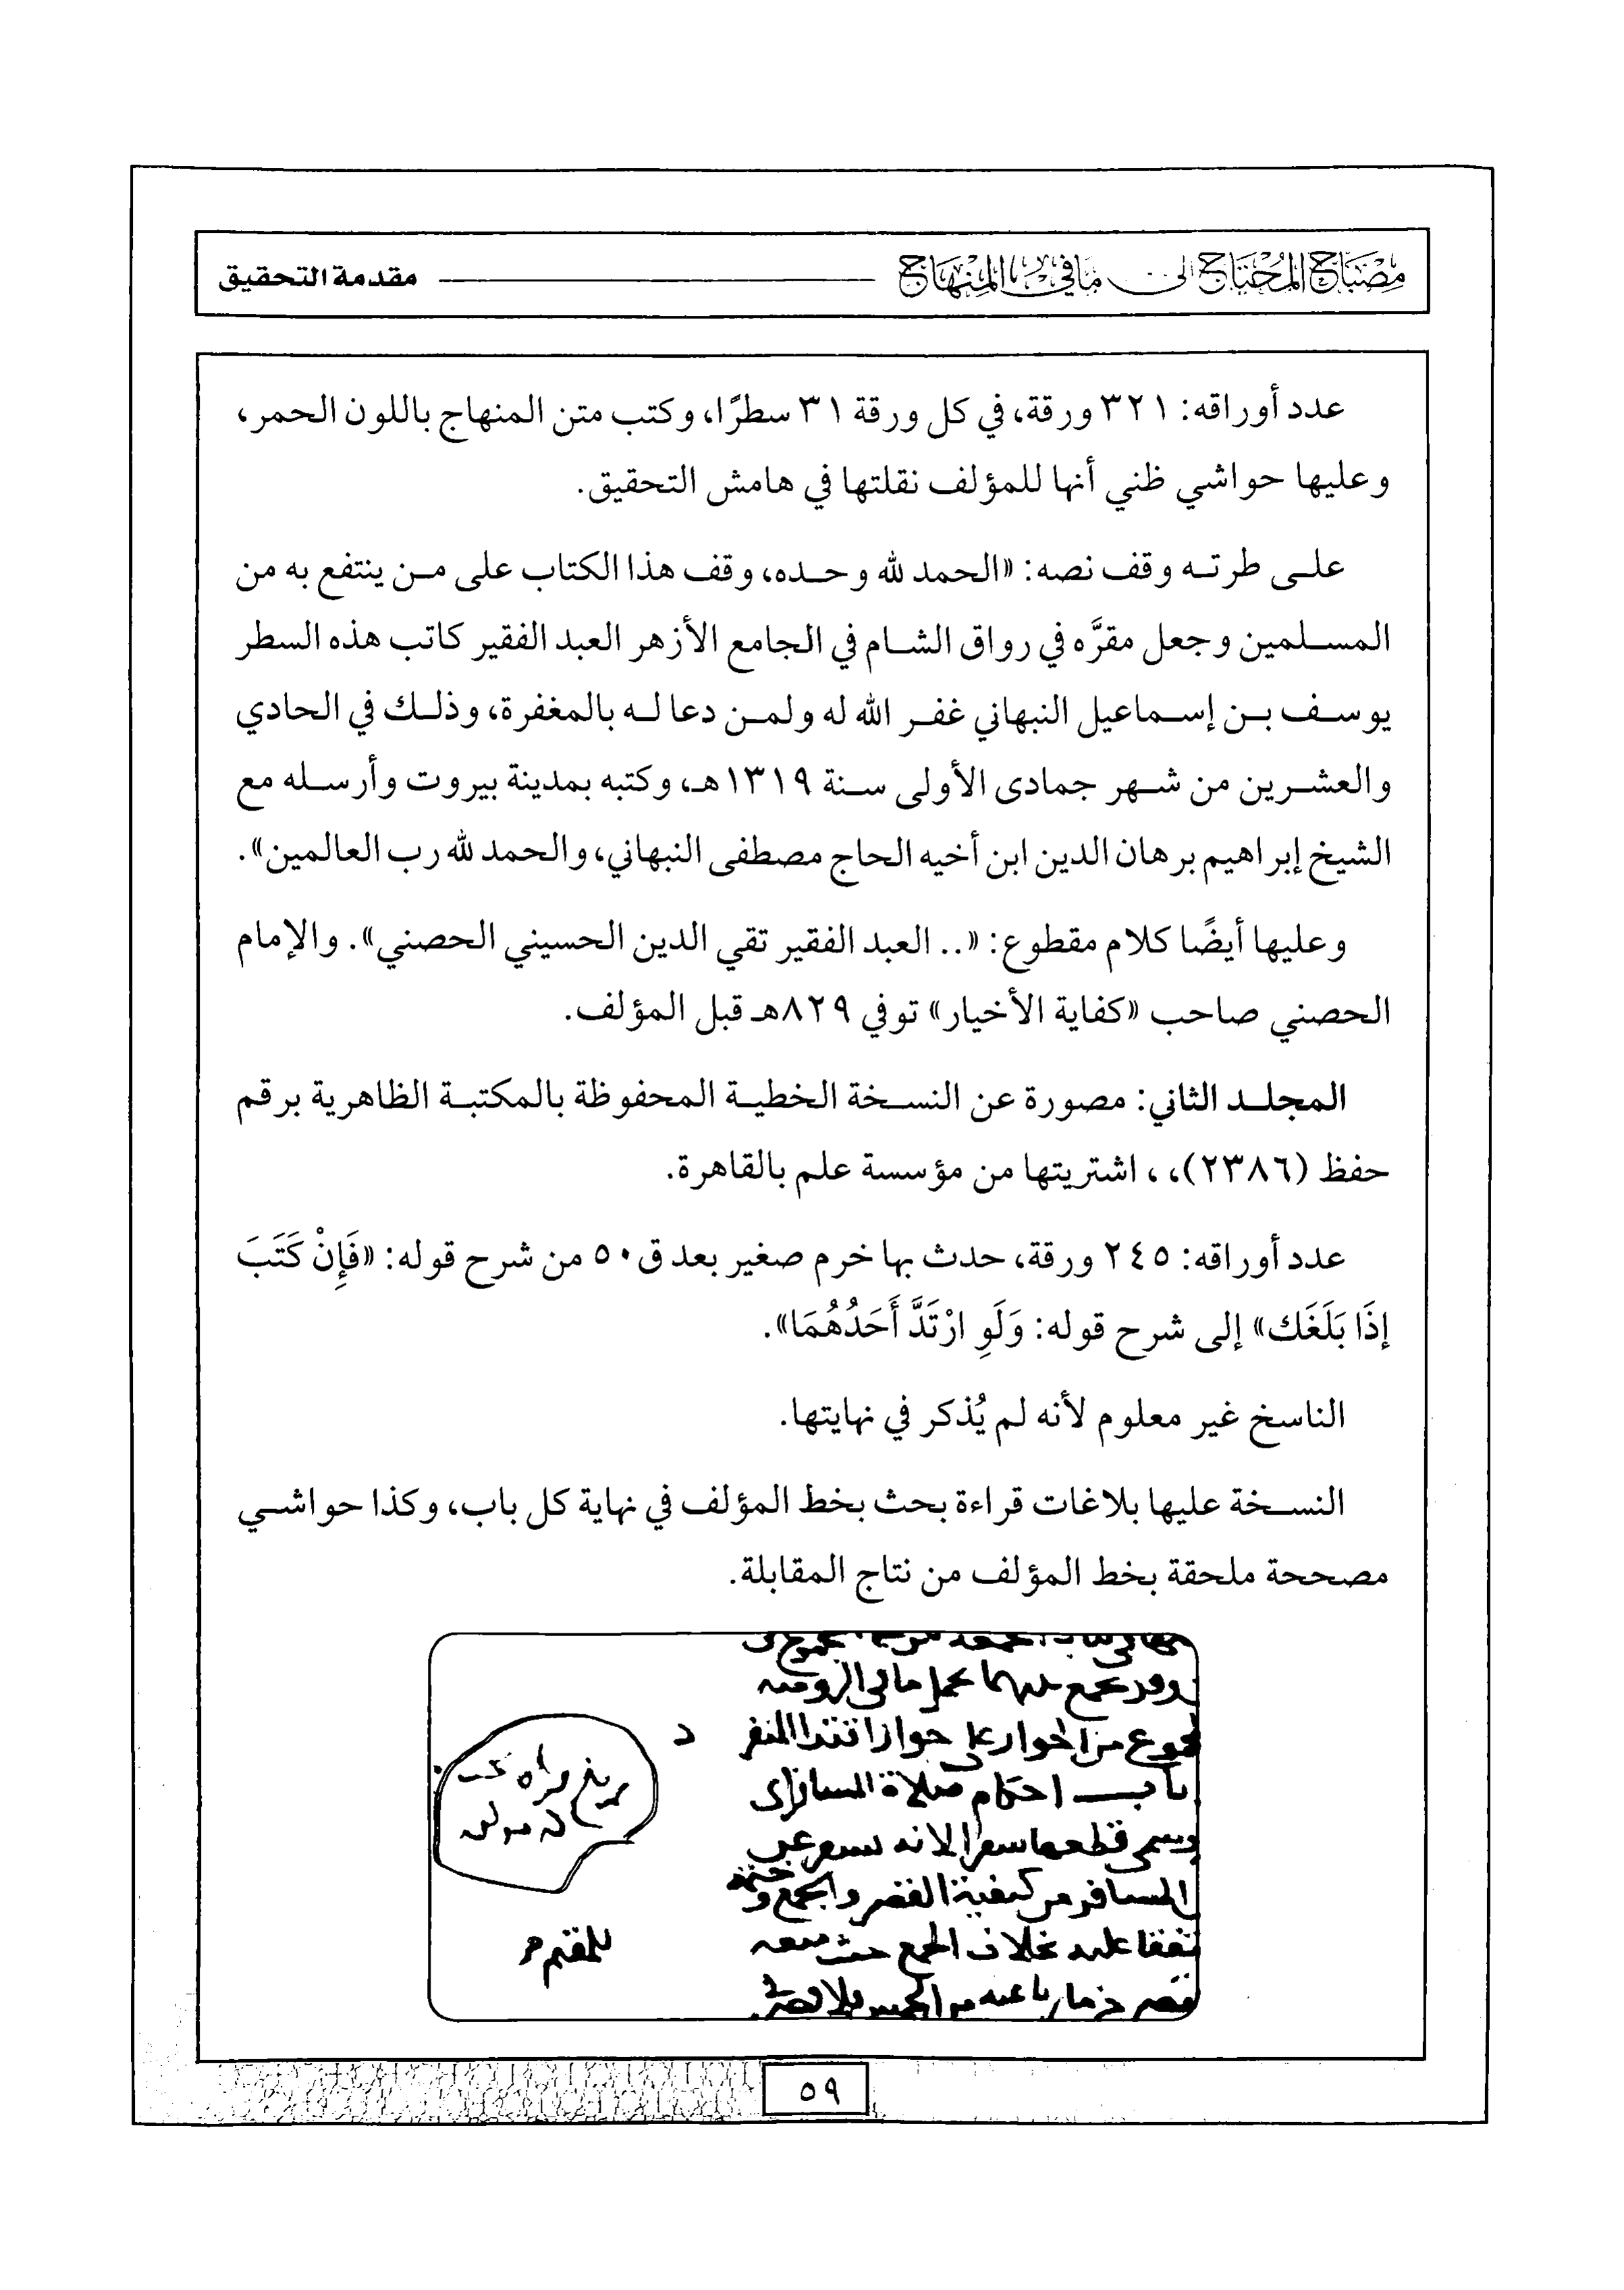 مصباح المحتاج إلى ما في المنهاج
مقدمة التحقيق
عدد أوراقه: ٣٢١ ورقة، في كل ورقة ٣١ سطرًا، وكتب متن المنهاج باللون الحمر،
وعليها حواشي ظني أنها للمؤلف نقلتها في هامش التحقيق.
على طرته وقف نصه: «الحمد لله وحده، وقف هذا الكتاب على من ينتفع به من
المسلمين وجعل مقرَّه في رواق الشام في الجامع الأزهر العبد الفقير كاتب هذه السطر
يوسف بن إسماعيل النبهاني غفر الله له ولمن دعا له بالمغفرة، وذلك في الحادي
والعشرين من شهر جمادى الأولى سنة ١٣١٩هـ، وكتبه بمدينة بيروت وأرسله مع
الشيخ إبراهيم برهان الدين ابن أخيه الحاج مصطفى النبهاني، والحمد لله رب العالمين».
وعليها أيضًا كلام مقطوع: «.. العبد الفقير تقي الدين الحسيني الحصني». والإمام
الحصني صاحب «كفاية الأخيار» توفي ٨٢٩هـ قبل المؤلف.
المجلد الثاني: مصورة عن النسخة الخطية المحفوظة بالمكتبة الظاهرية برقم
حفظ (٢٣٨٦)، ، اشتريتها من مؤسسة علم بالقاهرة.
عدد أوراقه: ٢٤٥ ورقة، حدث بها خرم صغير بعد ق٥٠ من شرح قوله: «فَإِنْ كَتَبَ
إِذَا بَلَغَك» إلى شرح قوله: وَلَوِ ارْتَدَّ أَحَدُهُمَا».
الناسخ غير معلوم لأنه لم يُذكر في نهايتها.
النسخة عليها بلاغات قراءة بحث بخط المؤلف في نهاية كل باب، وكذا حواشي
مصححة ملحقة بخط المؤلف من نتاج المقابلة.
باب احكام صلاة المسافر
٥٩